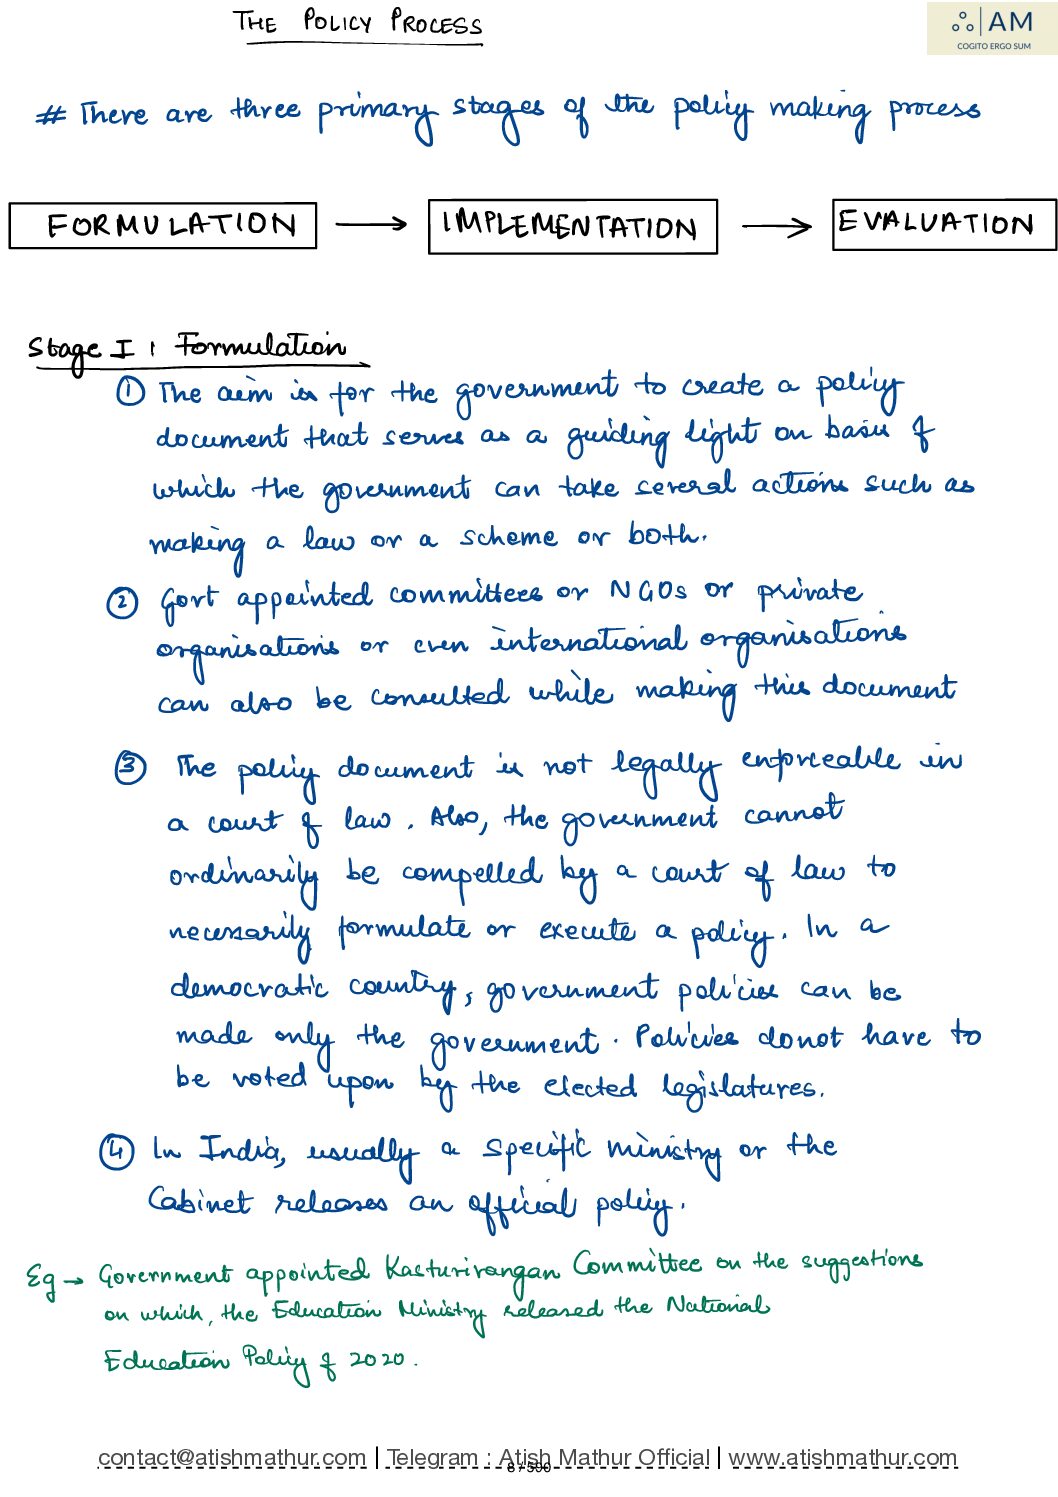 THE POLICY PROCESS
AM
COGITO ERGO SUM
# There are three primary stages of the policy making process
FORMULATION → IMPLEMENTATION → EVALUATION
Stage I : Formulation
① The aim is for the government to create a policy
document that serves as a guiding light on basis of
which the government can take several actions such as
making a law or a scheme or both.
② Govt appointed committees or NGOs or private
organisations or even international organisations
can also be consulted while making this document
③ The policy document is not legally enforceable in
a court of law. Also, the government cannot
ordinarily be compelled by a court of law to
necessarily formulate or execute a policy. In a
democratic country, government policies can be
made only the government. Policies donot have to
be voted upon by the elected legislatures.
④ In India, usually a specific ministry or the
Cabinet releases an official policy.
Eg → Government appointed Kasturirangan Committee on the suggestions
on which, the Education Ministry released the National
Education Policy of 2020.
contact@atishmathur.com | Telegram : Atish Mathur Official | www.atishmathur.com
8 / 590